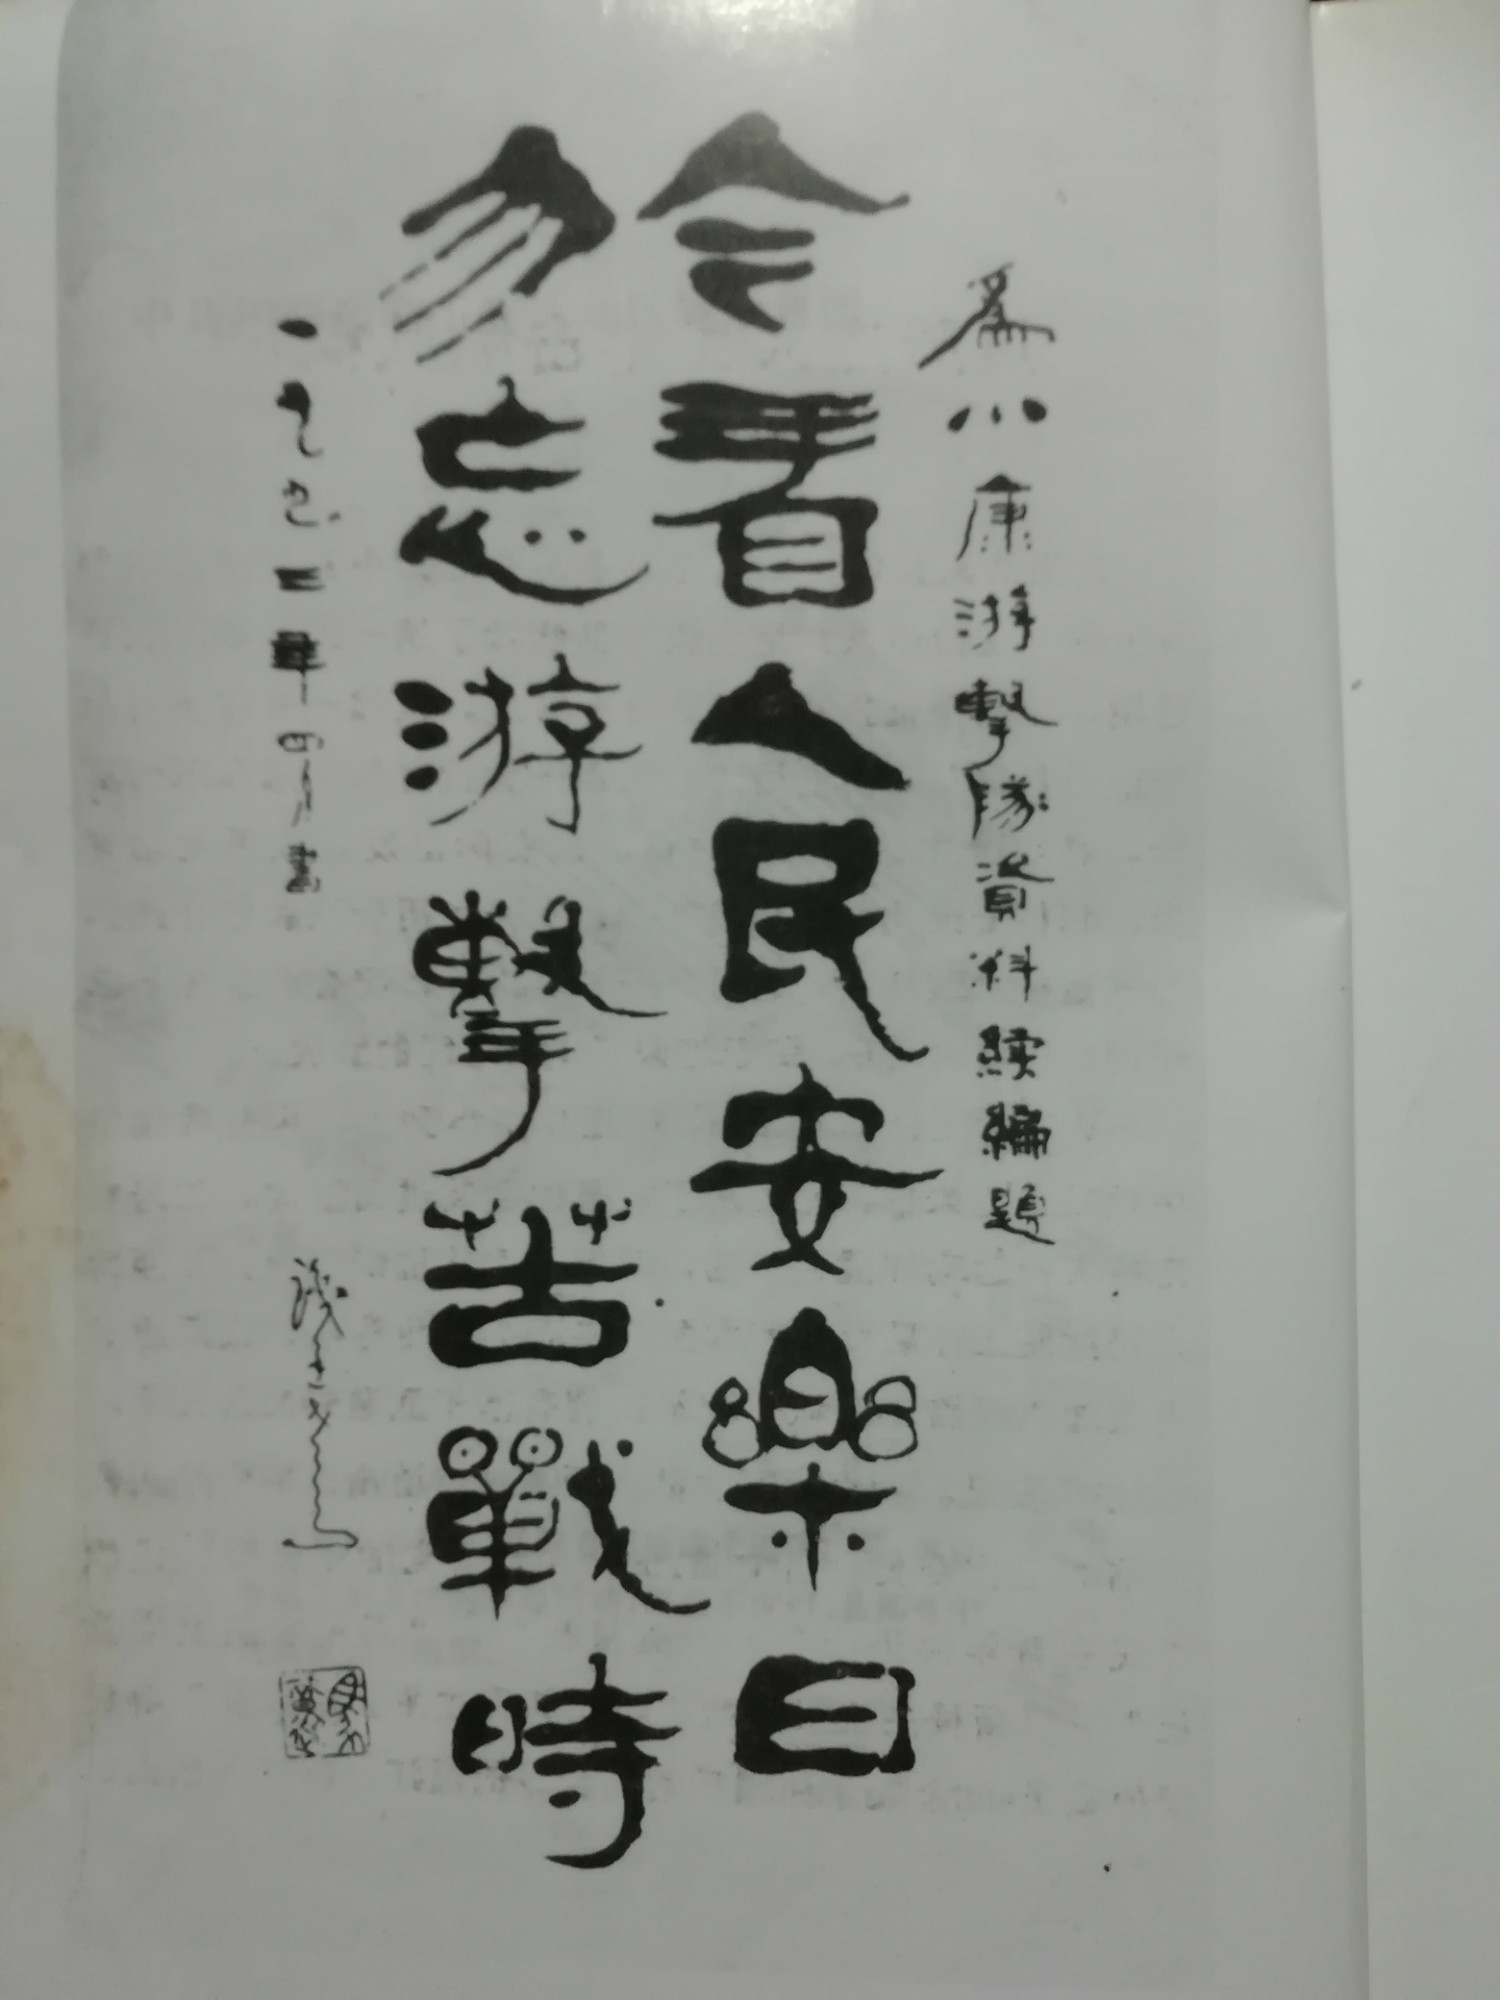 為八康游擊隊資料續編題
今看人民安樂日
勿忘游擊苦戰時
一九九三年四月書